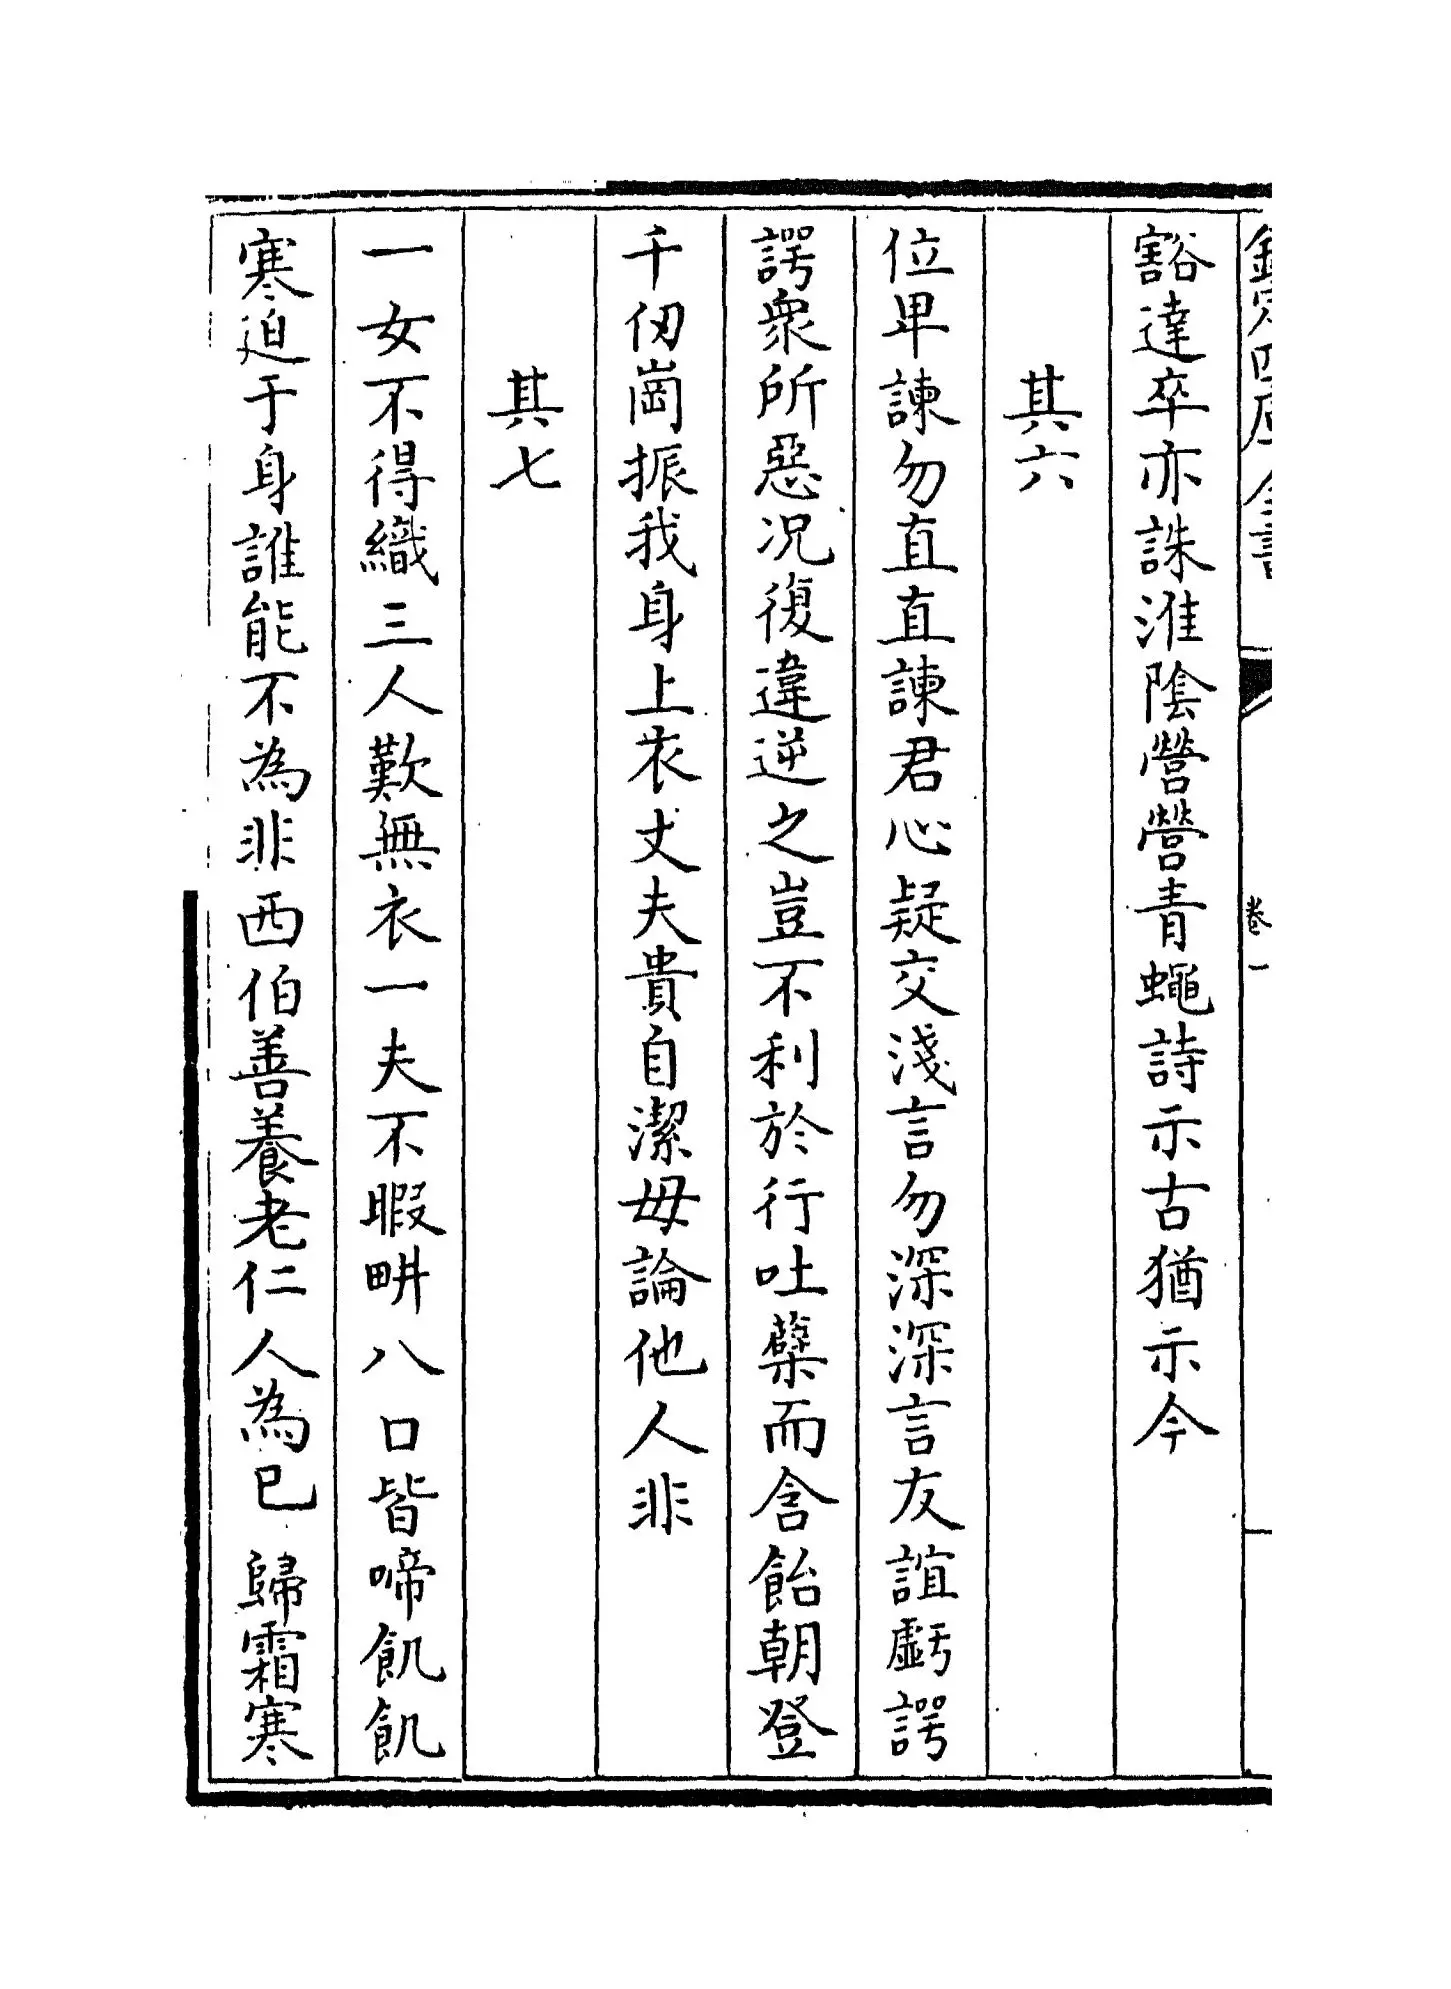 欽定四庫全書
卷一
豁達卒亦誅淮陰營營青蠅詩示古猶示今
其六
位卑諫勿直直諫君心疑交淺言勿深深言友誼虧諤
諤衆所惡况復違逆之豈不利於行吐蘗而含飴朝登
千仞崗振我身上衣丈夫貴自潔毋論他人非
其七
一女不得織三人歎無衣一夫不暇畊八口皆啼飢飢
寒迫于身誰能不為非西伯善養老仁人為已歸霜寒